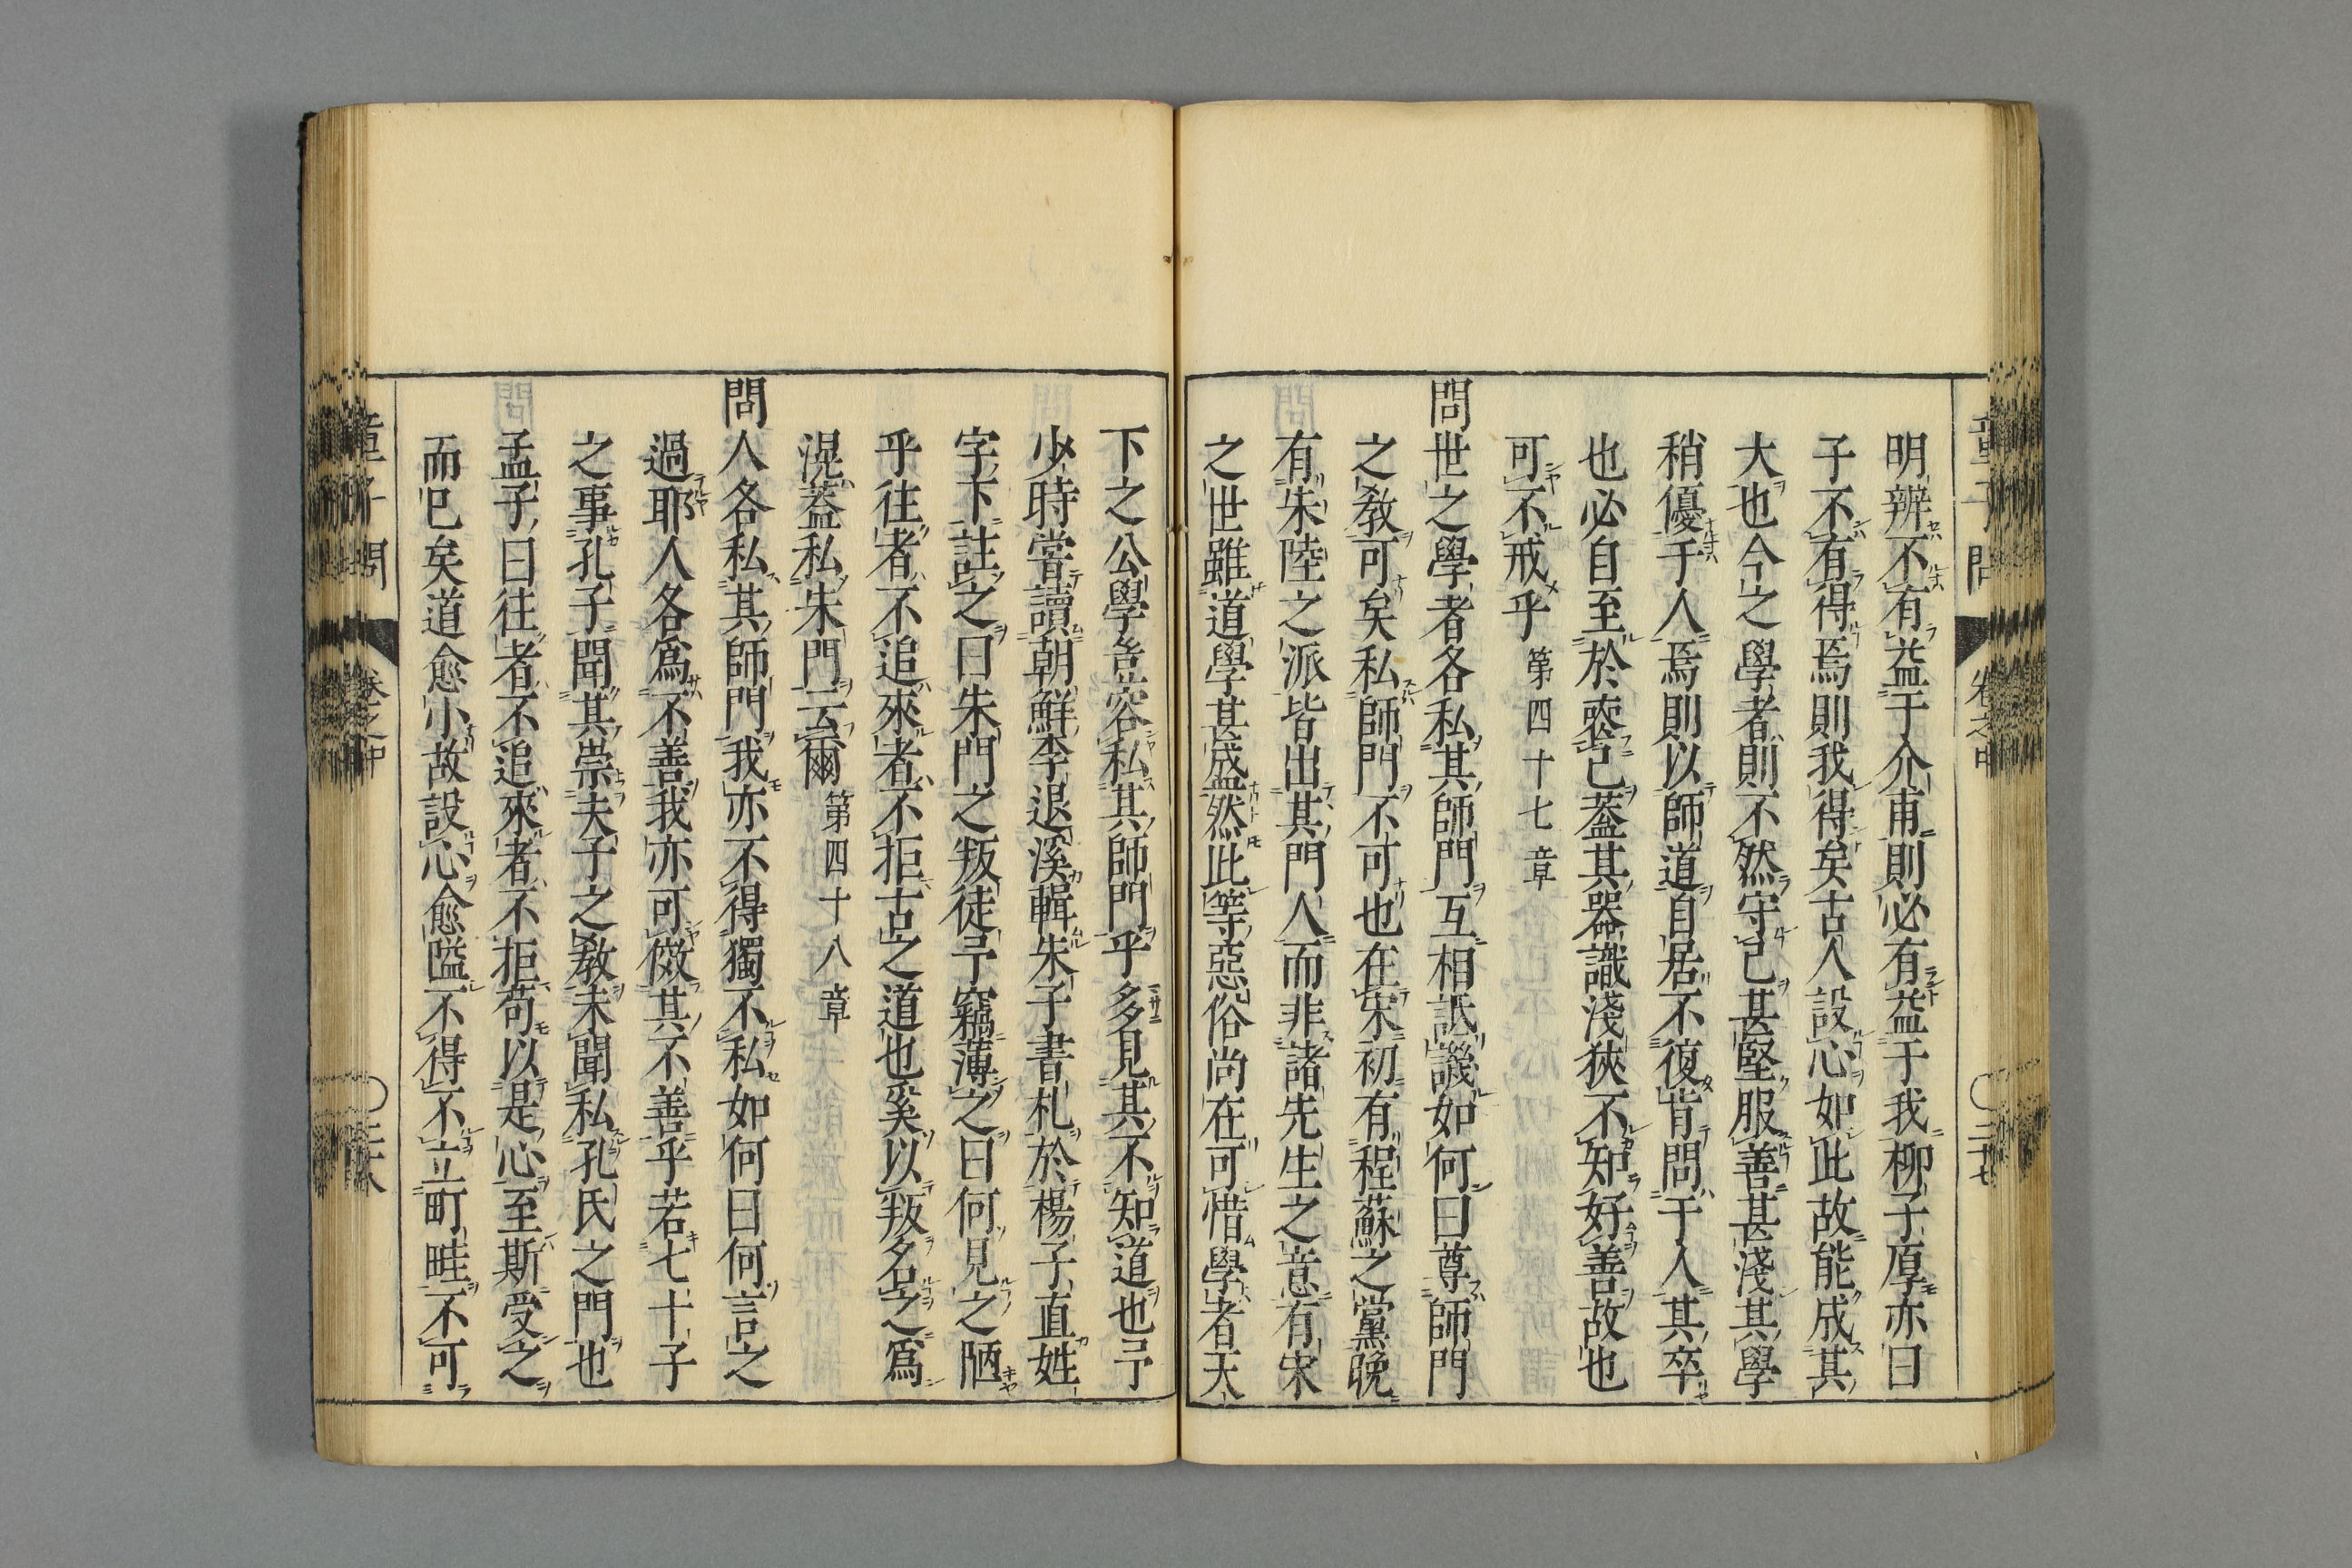 明辨不有益于介甫則必有益于我柳子厚亦曰
子不有得焉則我得矣古人設心如此故能成其
大也今之學者則不然守己甚堅服善甚淺其學
稍優于人焉則以師道自居不復肯問于人其卒
也必自至於喪己蓋其器識淺狹不知好善故也
可不戒乎 第四十七章
問世之學者各私其師門互相詆譏如何曰尊師門
之教可矣私師門不可也在宋初有程蘇之黨晚
有朱陸之派皆出其門人而非諸先生之意有宋
之世雖道學甚盛然此等惡俗尚在可惜學者天
下之公學豈容私其師門乎多見其不知道也予
少時嘗讀朝鮮李退溪輯朱子書札於楊子直姓
字下註之曰朱門之叛徒予竊薄之曰何見之陋
乎往者不追來者不拒古之道也奚以叛名之爲
滉蓋私朱門云爾 第四十八章
問人各私其師門我亦不得獨不私如何曰何言之
過耶人各爲不善我亦可傚其不善乎若七十子
之事孔子聞其崇夫子之教未聞私孔氏之門也
孟子曰往者不追來者不拒苟以是心至斯受之
而已矣道愈小故設心愈隘不得不立町畦不可
童子問 卷之中 三十七
童子問 卷之中 三十八